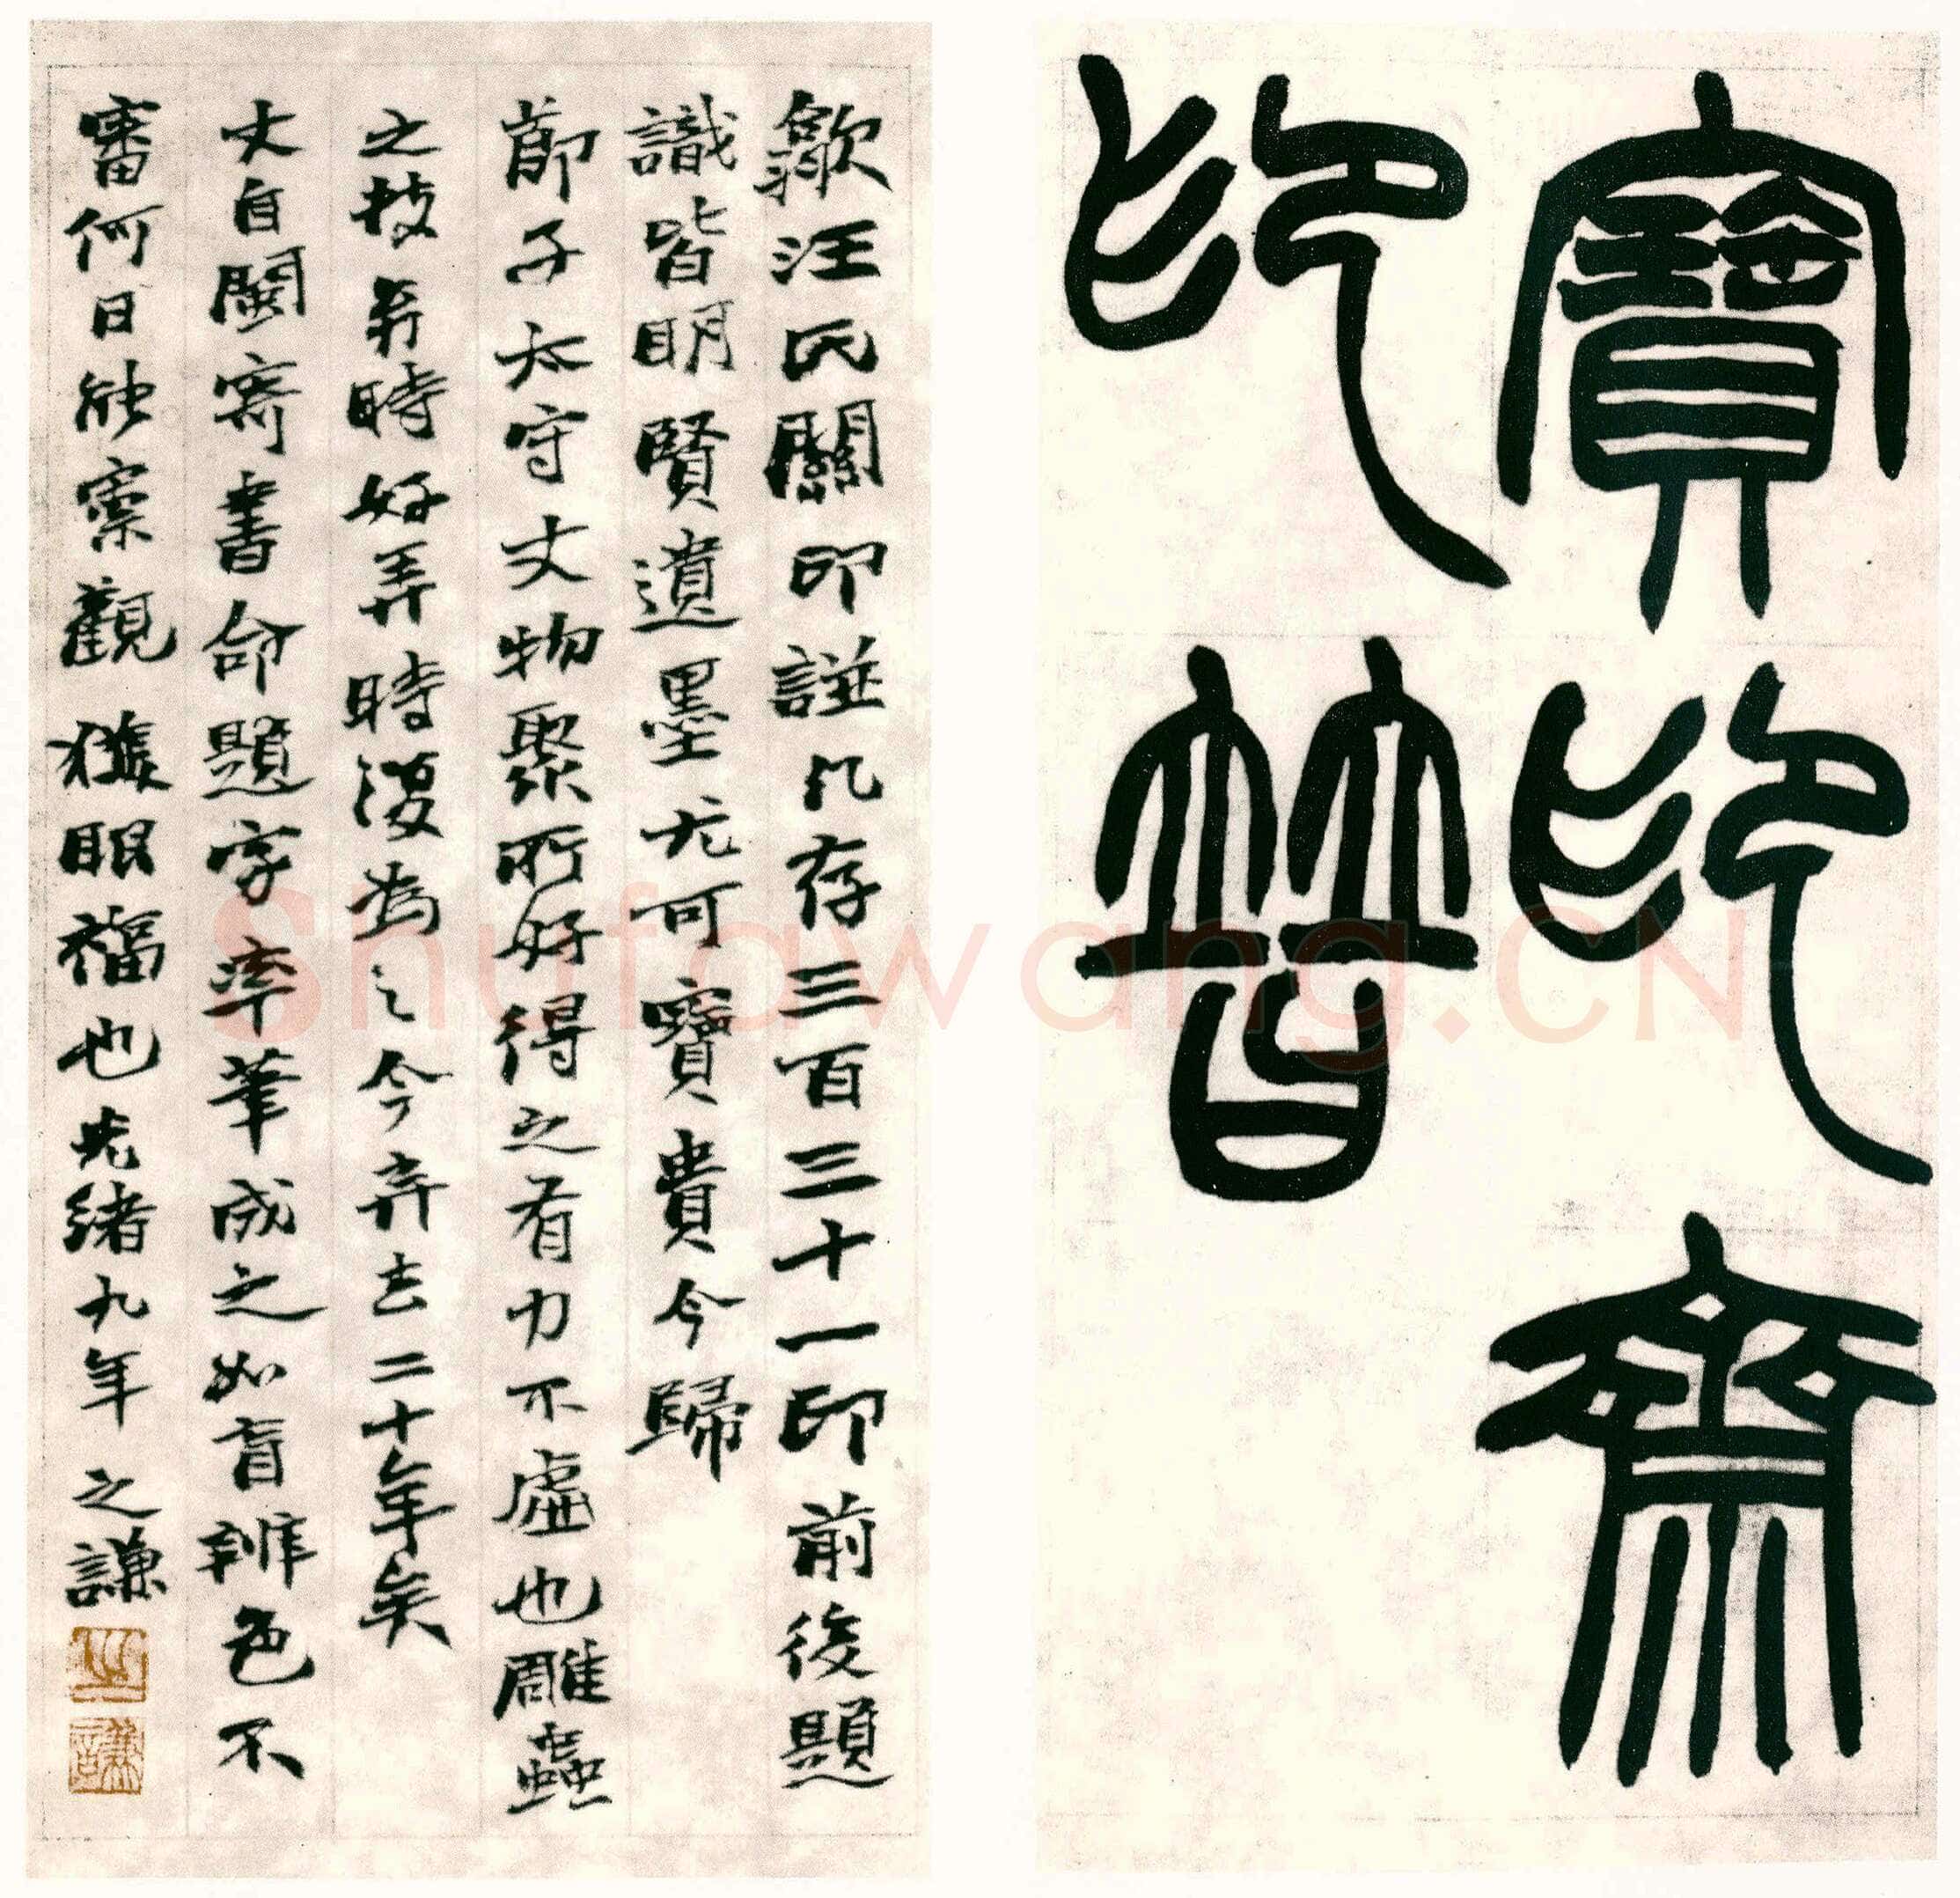 寶印齋
印普
歙汪氏關印譜凡存三百三十一印前後題
識皆明賢遺墨尤可寶貴今歸
節子太守丈物聚所好得之有力不虛也雕蟲
之技弟時好弄時復為之今弃去二十年矣
丈自閩寄書命題字率筆成之如盲辨色不
審何日能索觀獲眼福也光緒九年 之謙
之
謙
Shufawang.CN